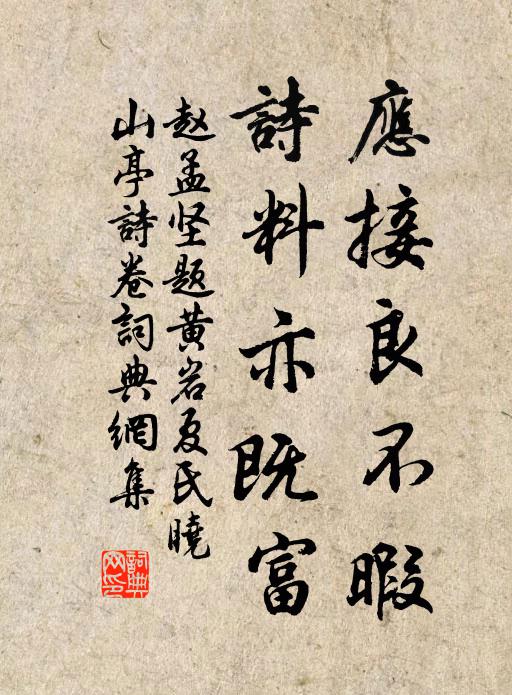 應接良不暇
詩料亦既富
赵孟坚题黄岩夏氏曉
山亭詩卷詞典網集
詞典网印